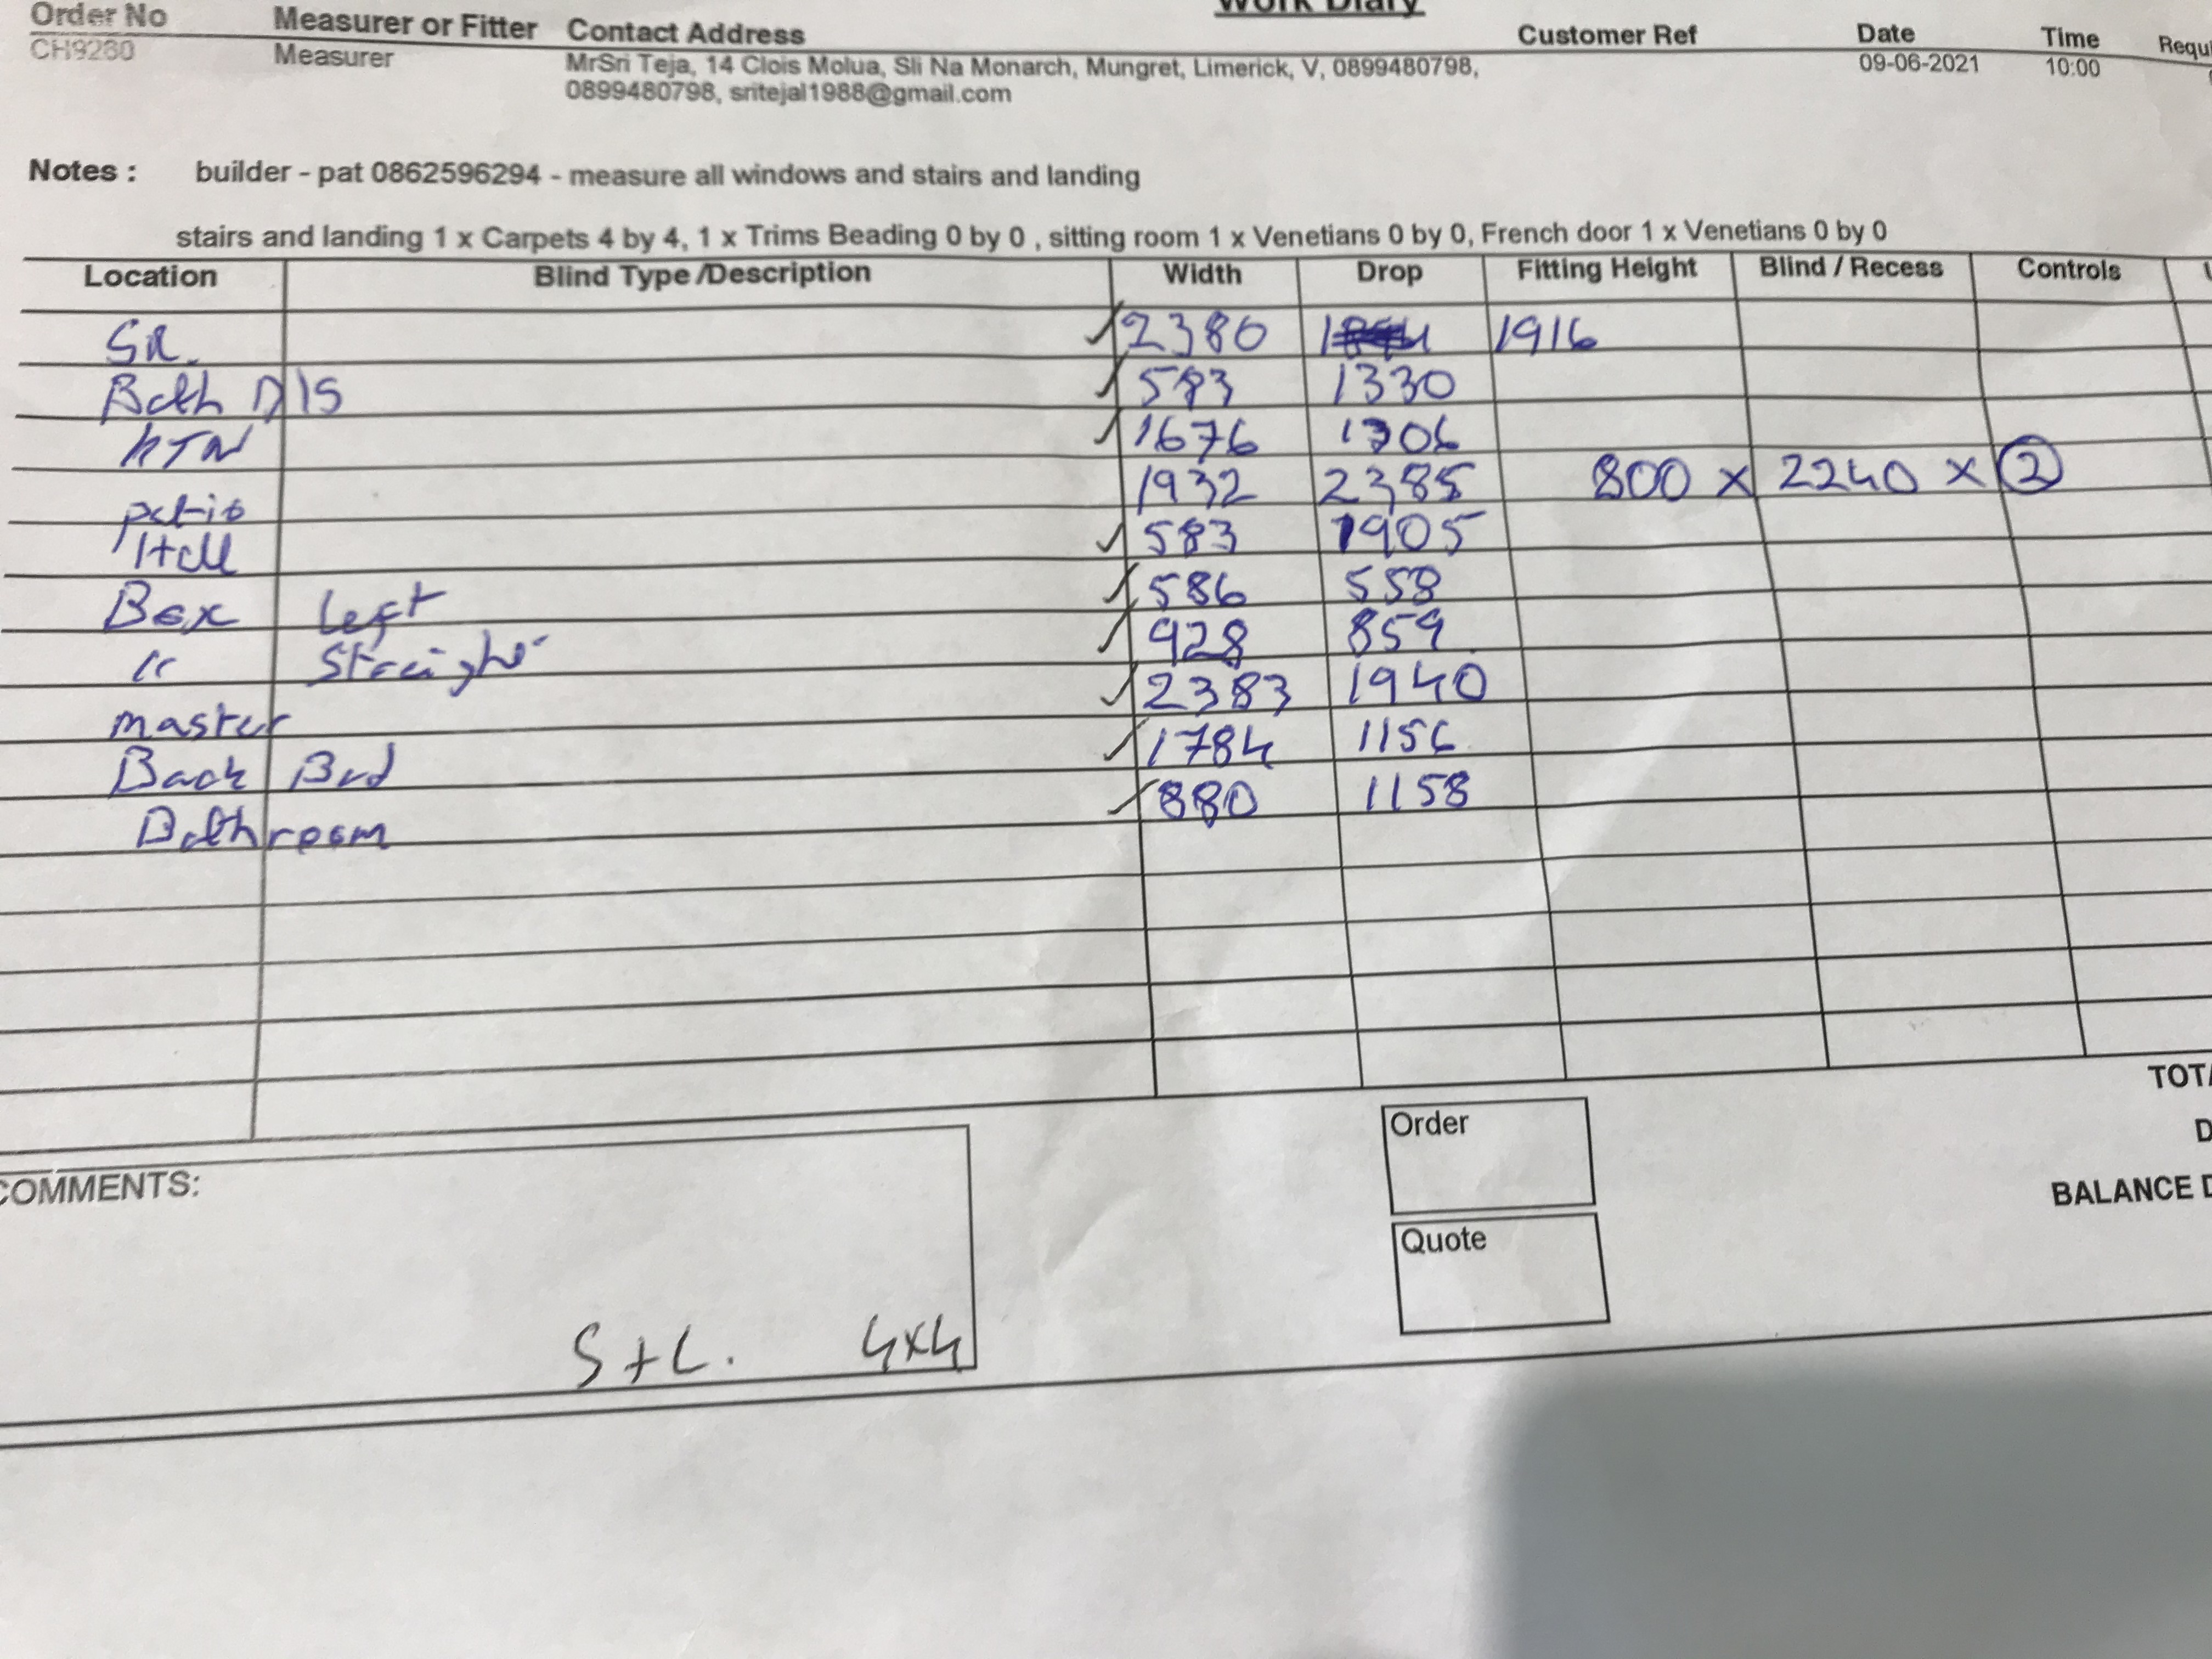 Work Diary
Order No Measurer or Fitter Contact Address Customer Ref Date Time
CH9280 Measurer MrSri Teja, 14 Clois Molua, Sli Na Monarch, Mungret, Limerick, V, 0899480798, 09-06-2021 10:00
0899480798, sritejal1988@gmail.com
Notes : builder - pat 0862596294 - measure all windows and stairs and landing
stairs and landing 1 x Carpets 4 by 4, 1 x Trims Beading 0 by 0 , sitting room 1 x Venetians 0 by 0, French door 1 x Venetians 0 by 0
Location Blind Type /Description Width Drop Fitting Height Blind / Recess Controls
SR. ✓ 2380 1916
Bath D/S ✓ 583 1330
KTN ✓ 1676 1306
patio 1932 2385 800 x 2240 x 2
Hall ✓ 583 1905
Box left ✓ 586 558
" Straight ✓ 928 859
master ✓ 2383 1940
Back Bed ✓ 1784 1156
Bathroom ✓ 880 1158
TOTA
D
BALANCE D
Order
COMMENTS:
Quote
S+L. 4x4